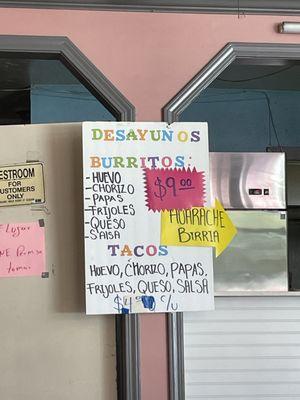 DESAYUÑOS
BURRITOS:
-HUEVO
-CHORIZO
-PAPAS
-FRIJOLES
-QUESO
SALSA
$9.00
HUARACHE
BIRRIA
TACOS
HUEVO, CHORIZO, PAPAS,
FRIJOLES, QUESO, SALSA
C/U
RESTROOM
FOR
CUSTOMERS
ONLY